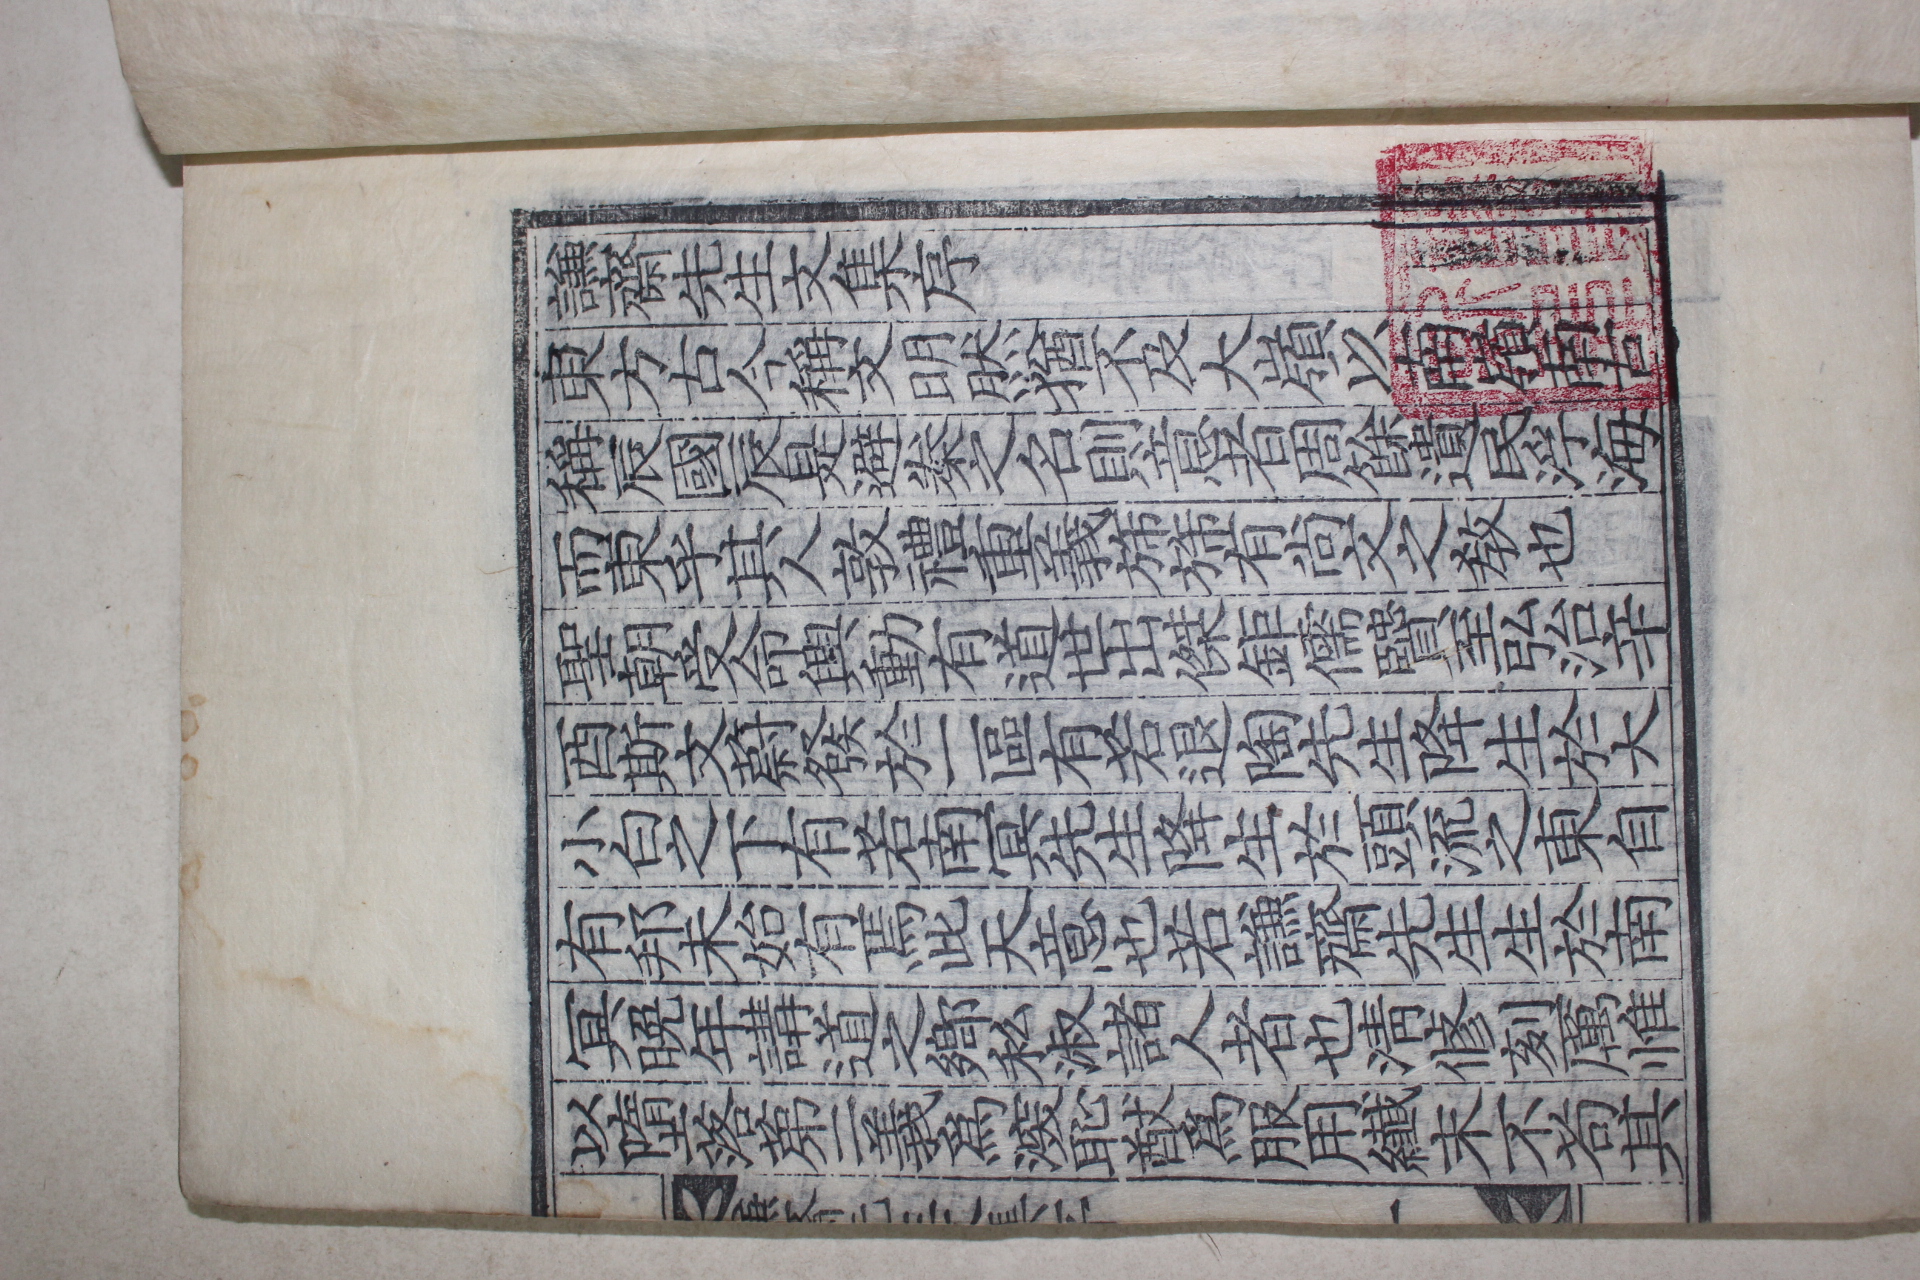 謙齋先生文集序
東方古今稱文明然猶不及大嶺以南嶺南古
稱辰國辰是避秦之名則意者周餘遺民浮海
而東乎其人敦禮重義斾斾有尚文之教也
聖朝受命輿動有道世出傑鉅儒賢至弘治辛
酉斯文蔚發於一區有若退陶先生降生於大
小白之下有若南冥先生降生於頭流之東自
有邦未始有焉此天意也若謙齋先生生於南
冥晩年講道之鄉私淑諸人者也淸修刻厲惟
以墮落第二義爲深恥猷爲服用纖末不苟其
謙齋先生文集序
一